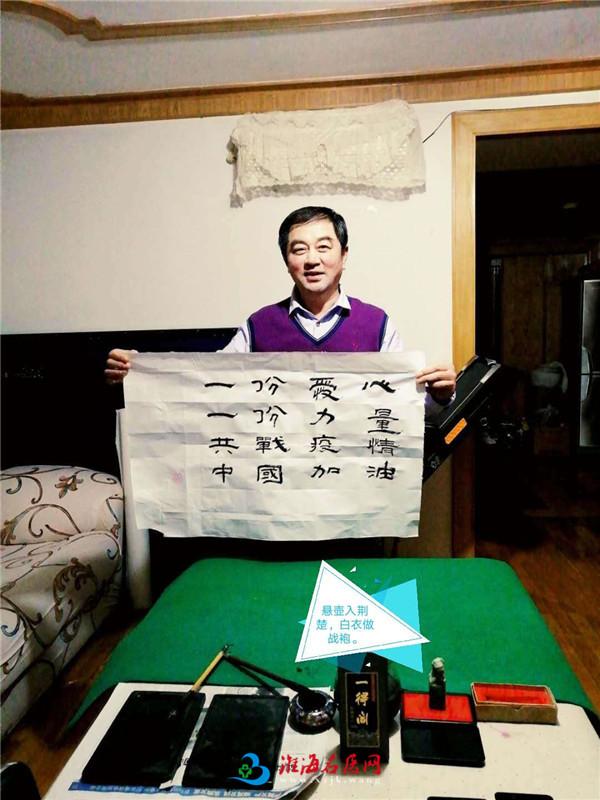 一份愛心
一份力量
共戰疫情
中國加油
悬壶入荆
楚，白衣做
战袍。
一得阁
淮海名医网